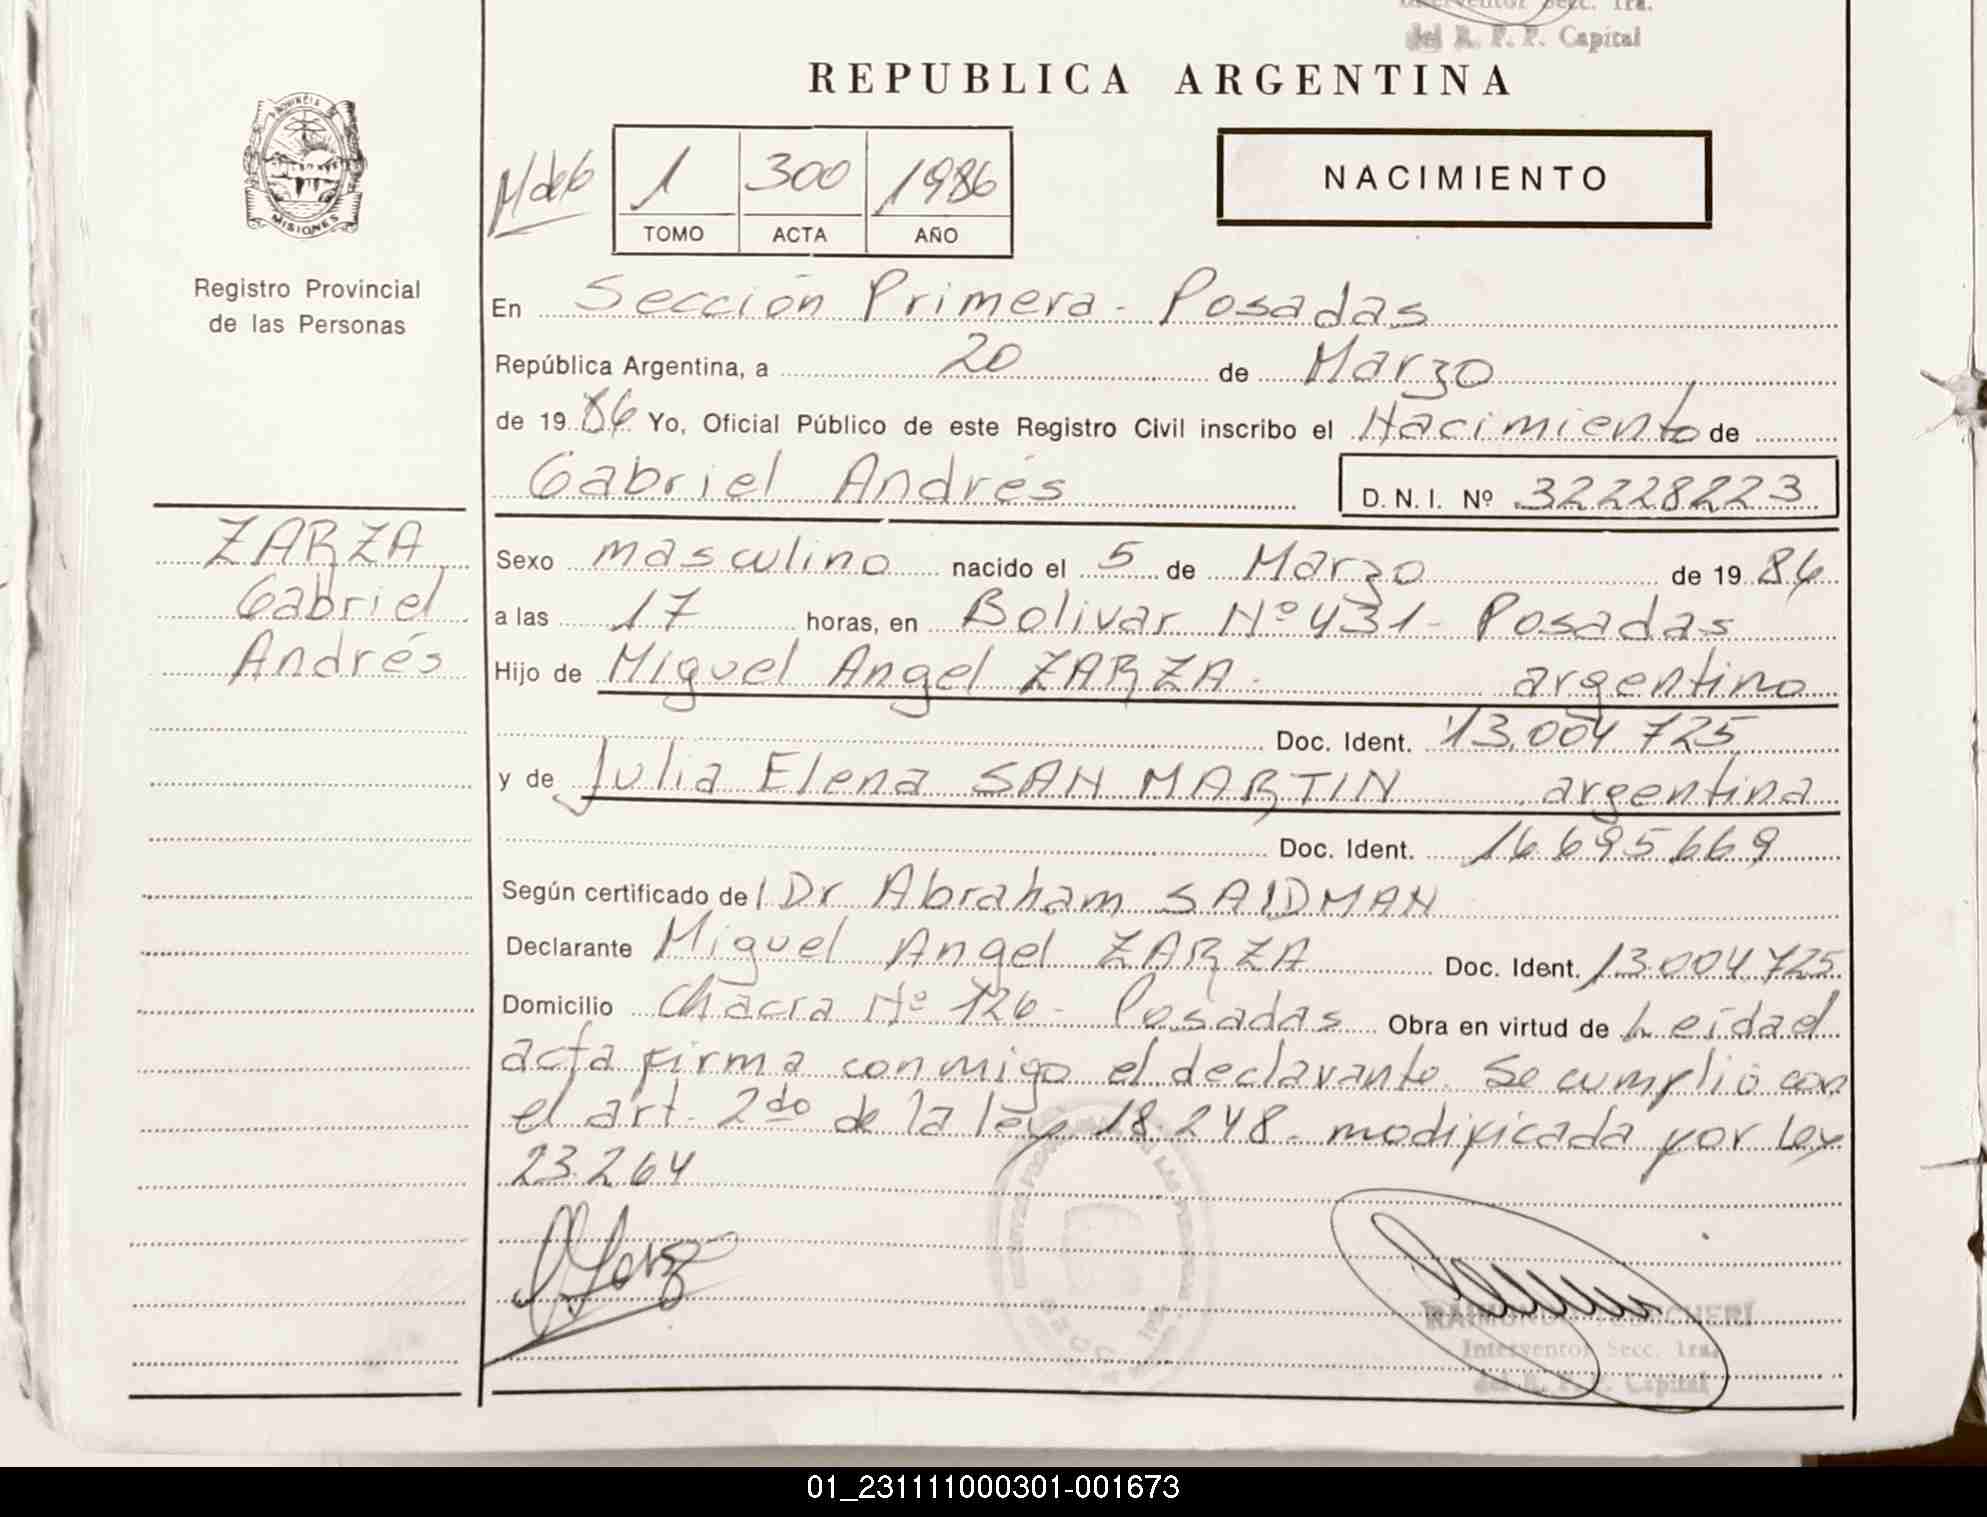 Interventor Secc. 1ra.
del R. P. P. Capital
REPUBLICA ARGENTINA
PROVINCIA DE
MISIONES
Registro Provincial
de las Personas
1 300 1986
TOMO ACTA AÑO
NACIMIENTO
En Sección Primera - Posadas
República Argentina, a 20 de Marzo
de 1986 Yo, Oficial Público de este Registro Civil inscribo el Nacimiento de
Gabriel Andrés D.N.I. Nº 32228223
ZARZA
Gabriel
Andrés
Sexo masculino nacido el 5 de Marzo de 1986
a las 17 horas, en Bolivar Nº 431 - Posadas
Hijo de Miguel Angel ZARZA - argentino
Doc. Ident. 13.004 725
y de Julia Elena SAN MARTIN argentina
Doc. Ident. 16695669
Según certificado del Dr Abraham SAIDMAN
Declarante Miguel Angel ZARZA Doc. Ident. 13004725
Domicilio Chacra Nº 126 - Posadas Obra en virtud de Leida el
acta firma conmigo el declarante. Se cumplió con
el art. 2do de la ley 18.248 - modificada por Ley
23.264
RAIMUNDO
Interventor Secc. 1ra.
del R. P. P. Capital
01_231111000301-001673